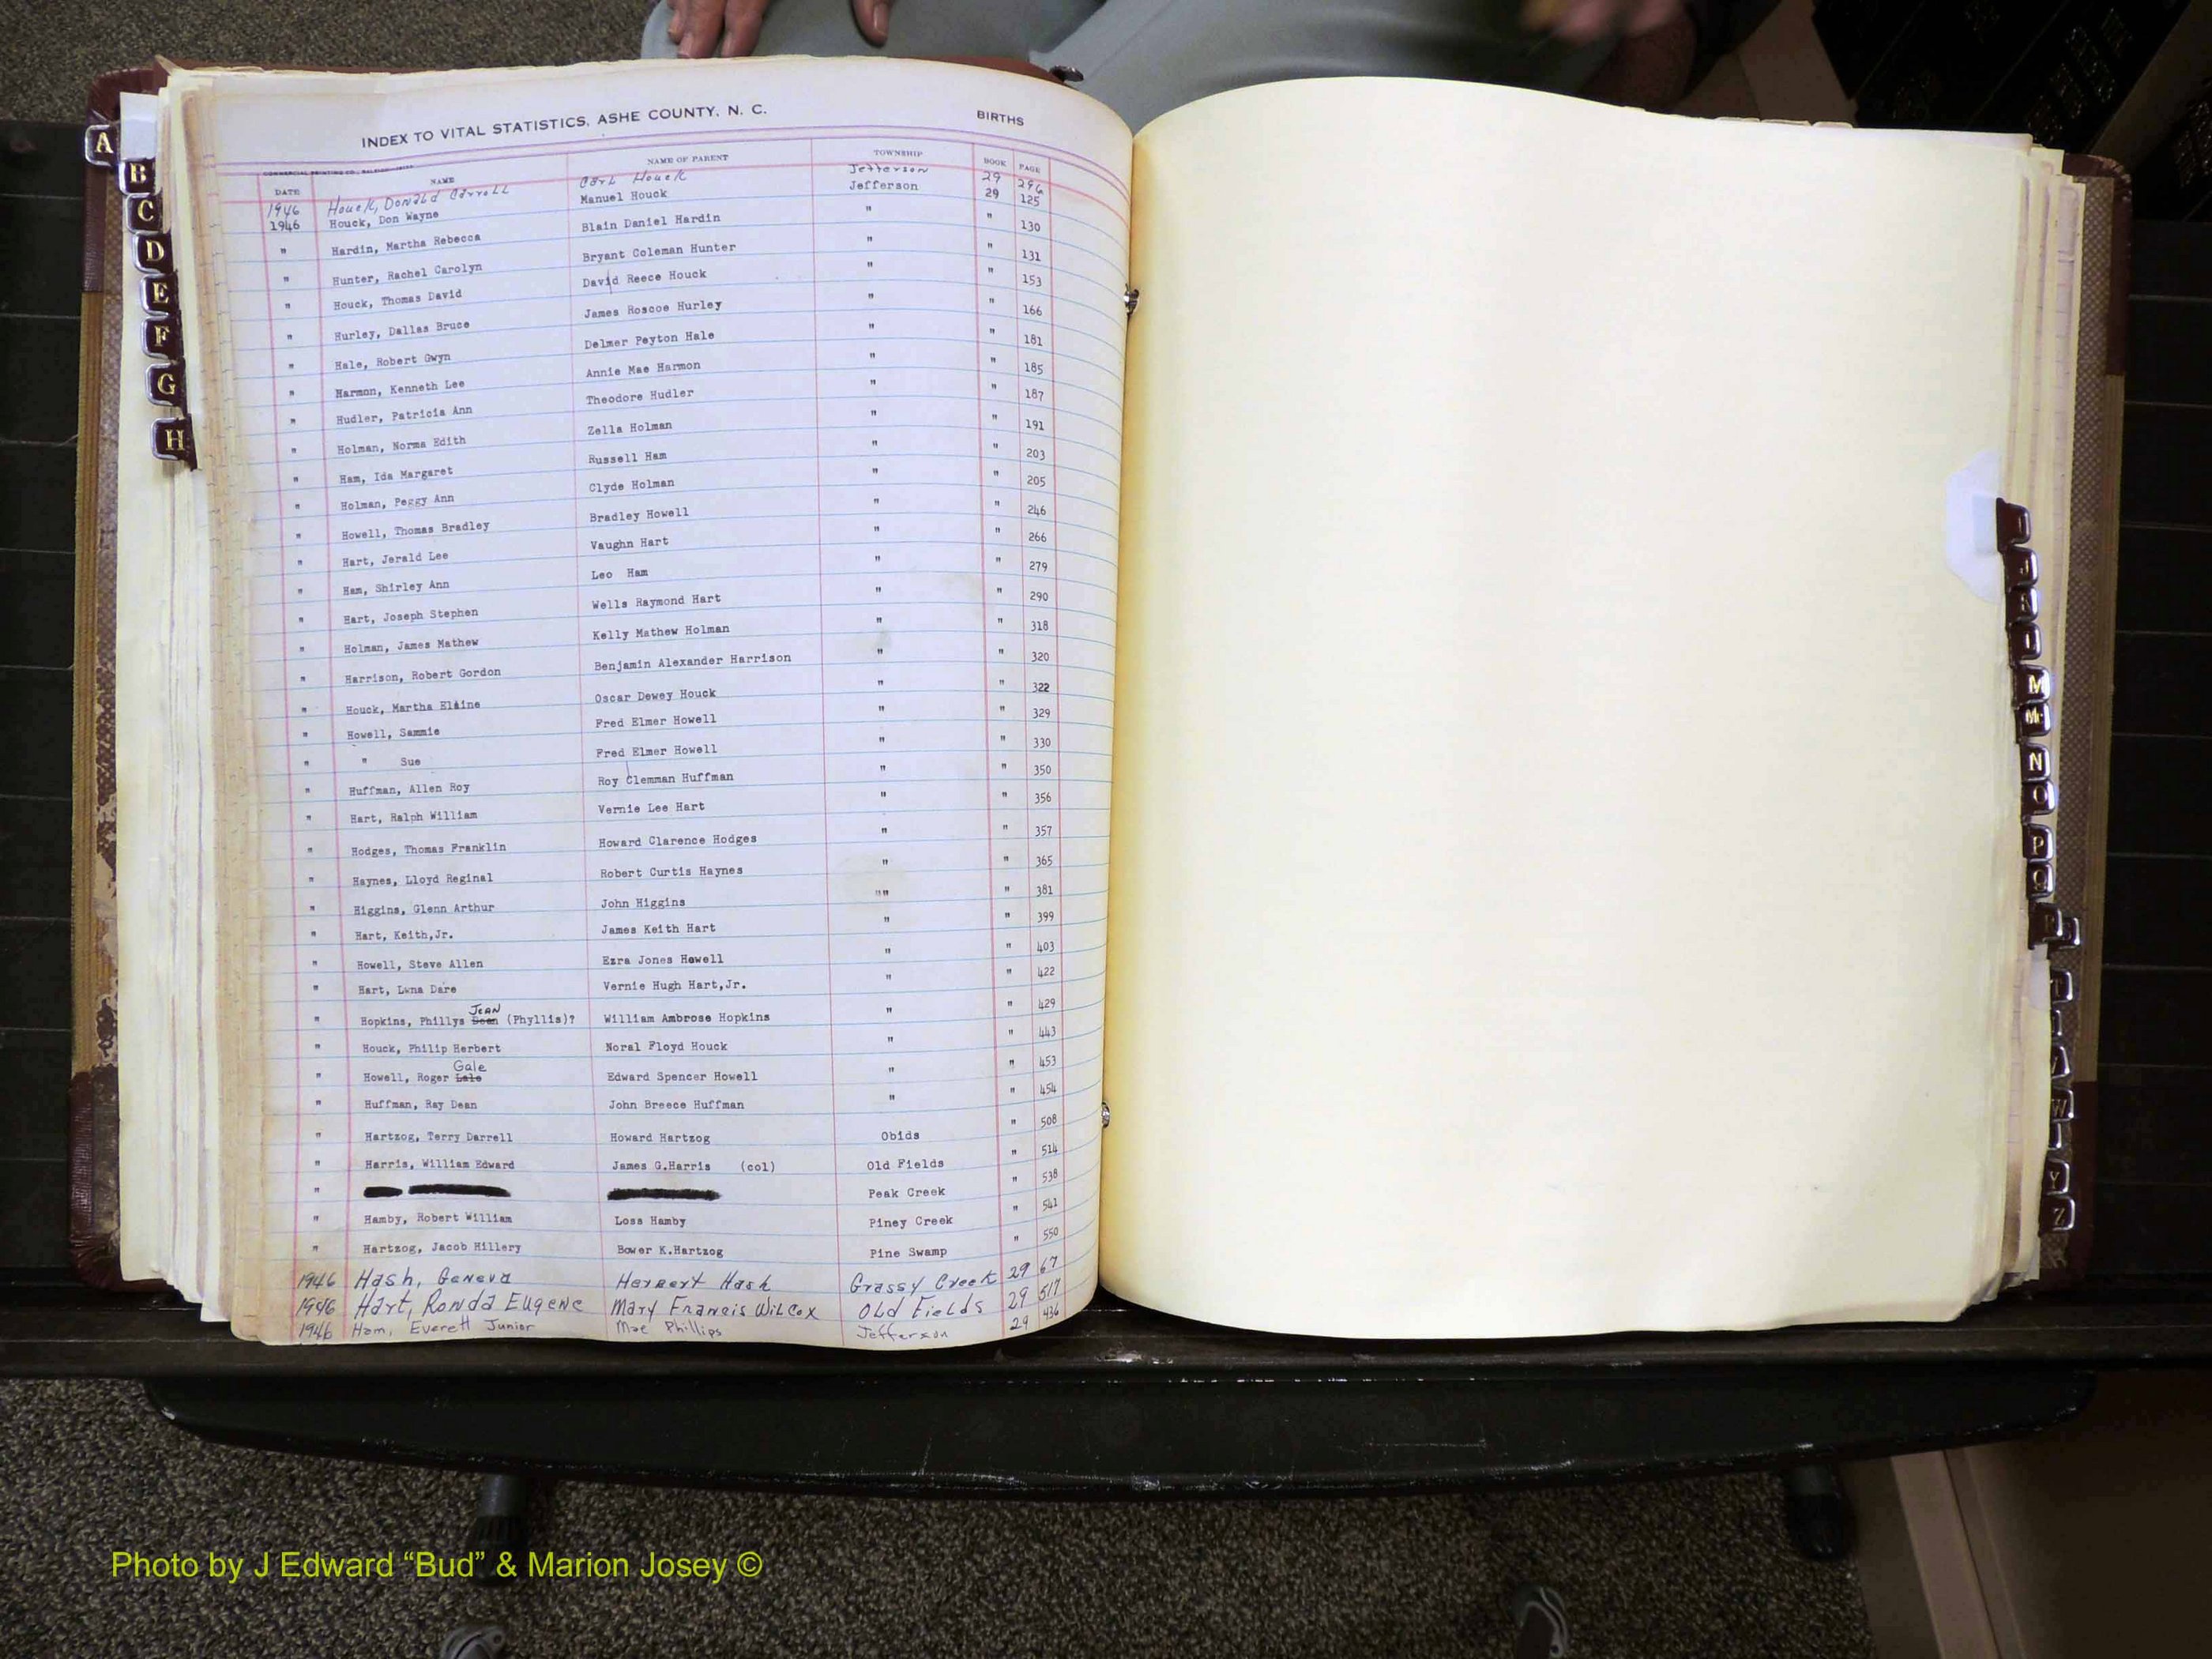 INDEX TO VITAL STATISTICS, ASHE COUNTY, N. C. BIRTHS
DATE NAME NAME OF PARENT TOWNSHIP BOOK PAGE
1946 Houck, Donald Carroll Carl Houck Jefferson 29 296
1946 Houck, Don Wayne Manuel Houck Jefferson 29 125
" Hardin, Martha Rebecca Blain Daniel Hardin " " 130
" Hunter, Rachel Carolyn Bryant Coleman Hunter " " 131
" Houck, Thomas David David Reece Houck " " 153
" Hurley, Dallas Bruce James Roscoe Hurley " " 166
" Hale, Robert Gwyn Delmer Peyton Hale " " 181
" Harmon, Kenneth Lee Annie Mae Harmon " " 185
" Hudler, Patricia Ann Theodore Hudler " " 187
" Holman, Norma Edith Zella Holman " " 191
" Ham, Ida Margaret Russell Ham " " 203
" Holman, Peggy Ann Clyde Holman " " 205
" Howell, Thomas Bradley Bradley Howell " " 246
" Hart, Jerald Lee Vaughn Hart " " 266
" Ham, Shirley Ann Leo Ham " " 279
" Hart, Joseph Stephen Wells Raymond Hart " " 290
" Holman, James Mathew Kelly Mathew Holman " " 318
" Harrison, Robert Gordon Benjamin Alexander Harrison " " 320
" Houck, Martha Elaine Oscar Dewey Houck " " 322
" Howell, Sammie Fred Elmer Howell " " 329
" " Sue Fred Elmer Howell " " 330
" Huffman, Allen Roy Roy Clemman Huffman " " 350
" Hart, Ralph William Vernie Lee Hart " " 356
" Hodges, Thomas Franklin Howard Clarence Hodges " " 357
" Haynes, Lloyd Reginal Robert Curtis Haynes " " 365
" Higgins, Glenn Arthur John Higgins "" " 381
" Hart, Keith,Jr. James Keith Hart " " 399
" Howell, Steve Allen Ezra Jones Howell " " 403
" Hart, Lwna Dare Vernie Hugh Hart,Jr. " " 422
" Hopkins, Phillys Jean (Phyllis)? William Ambrose Hopkins " " 429
" Houck, Philip Herbert Noral Floyd Houck " " 443
" Howell, Roger Gale Edward Spencer Howell " " 453
" Huffman, Ray Dean John Breece Huffman " " 454
" Hartzog, Terry Darrell Howard Hartzog Obids " 508
" Harris, William Edward James G.Harris (col) Old Fields " 514
" Peak Creek " 538
" Hamby, Robert William Loss Hamby Piney Creek " 541
" Hartzog, Jacob Hillery Bower K.Hartzog Pine Swamp " 550
1946 Hash, Geneva Herbert Hash Grassy Creek 29 67
1946 Hart, Ronda Eugene Mary Francis Wilcox Old Fields 29 517
1946 Ham, Everett Junior Mae Phillips Jefferson 29 436
A
B
C
D
E
F
G
H
M
Mc
N
O
P
Q
R
T
W
Y
Z
Photo by J Edward “Bud” & Marion Josey ©